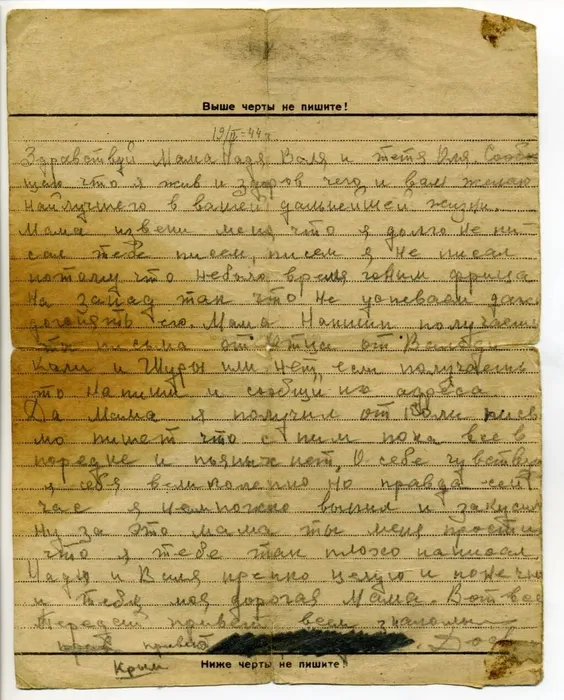 Выше черты не пишите!
19/II-44 г
Здравствуй Мама Надя Валя и тетя Оля Сооб
щаю что я жив и здоров чего и вам желаю
наилучшего в вашей дальнейшей жизни.
Мама извени меня что я долго не пи
сал тебе писем, писем я не писал
потому что небыло время гоним фрица
на запад так что не успеваем даже
догонять его. Мама Напиши получаеш
ты письма от отца от
Коли и Шуры или нет, если получаешь
то напиши и сообщи их адреса.
Да Мама я получил от Коли пись
мо пишет что с ним пока все в
поредке и пьяных нет, О себе чувствую
я себя великолепно но правда сей
час я немножко выпил и закусил
Ну за это мама ты меня прости
что я тебе так плохо написал
Надю и Валя крепко целую и конечно
и тебя моя дорогая Мама. Вот все
Передай привет всем знакомым
привет
Крым
Ниже черты не пишите!